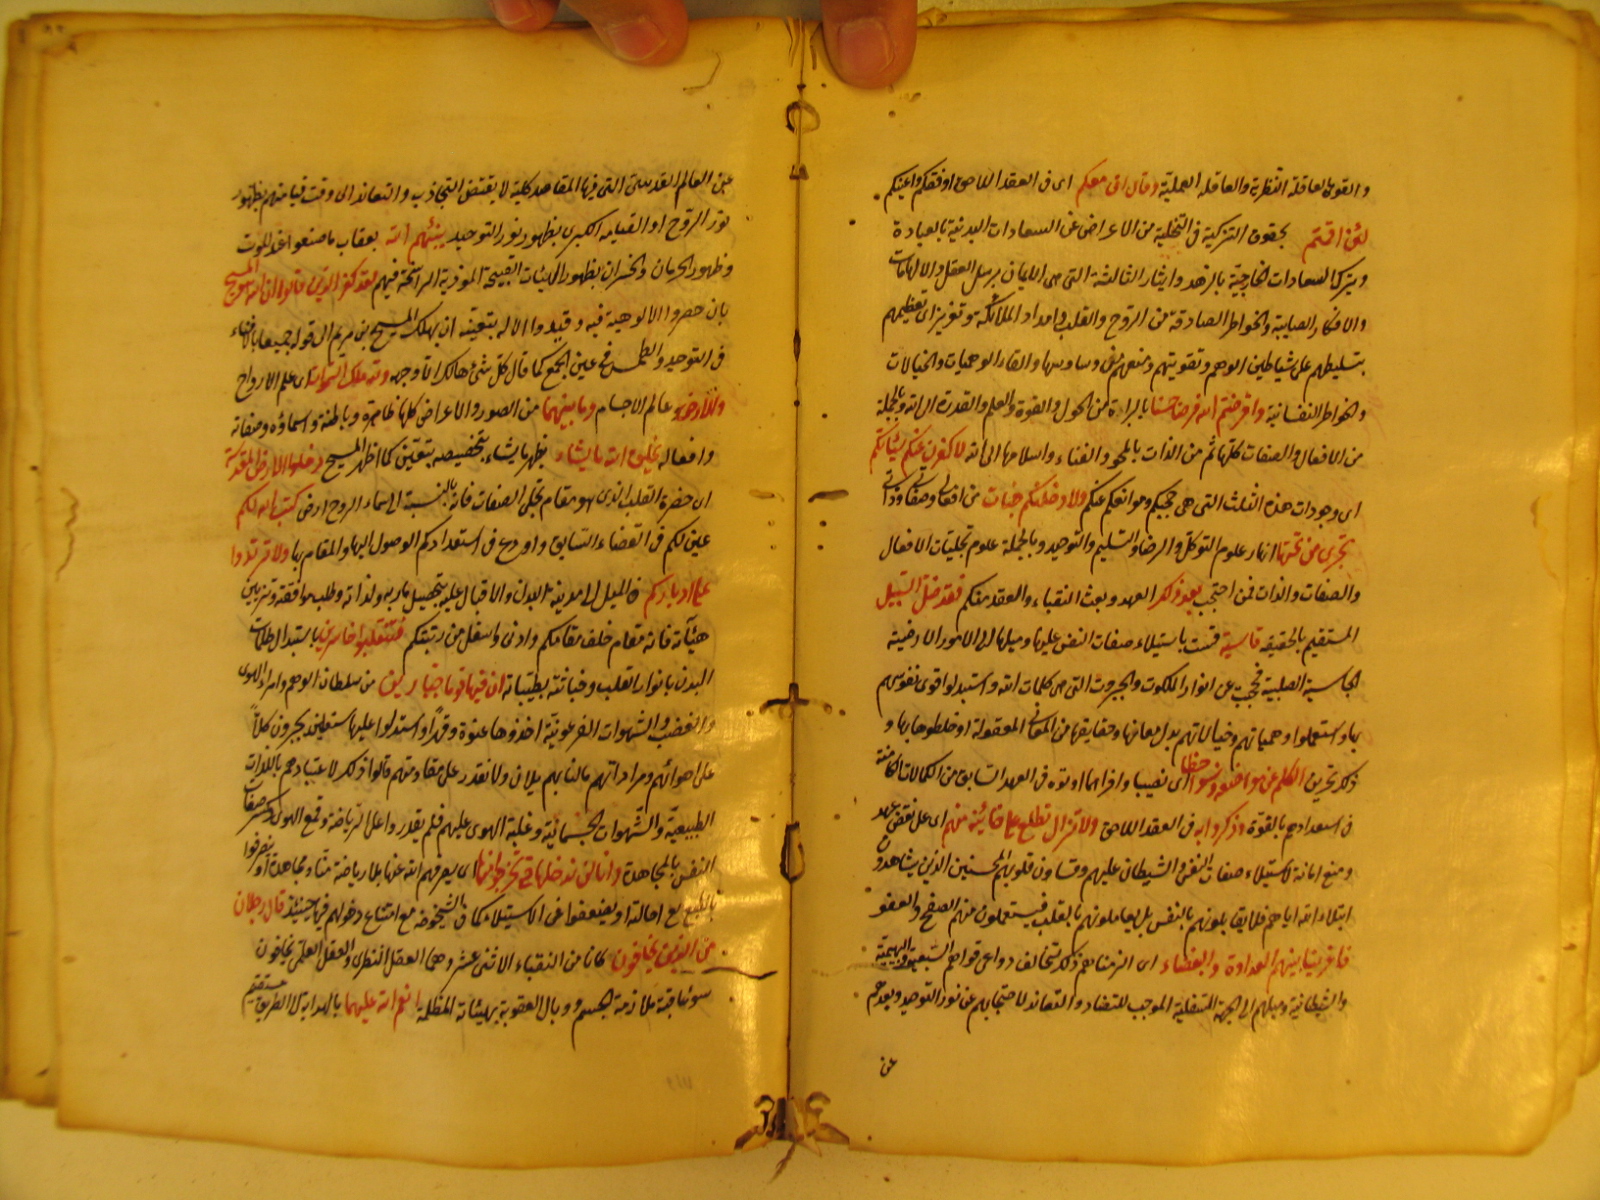 والقوة العاقلة النظرية والعاقلة العملية وقال انى معكم اى فى العقد اللاحق اوفقكم واعينكم
لئن اقمتم بحقوق التزكية فى التخلية من الاعراض عن السعادات البدنية بالعبادة
وبترك السعادات الخارجية بالزهد وايثار الثالثة التى هى الايمان برسل العقل والالهامات
والافكار الصايبة والخواطر الصادقة من الروح والقلب وامداد الملائكة وتعزيز اى تعظيمهم
بتسليطهم على شياطين الوهم وتقويتهم ومنعهم من وساوسها والقاء الوهميات والخيالات
والخواطر النفسانية واقرضتم الله قرضا حسنا بالبراءة من الحول والقوة والعلم والقدرة الى الله وبالجملة
من الافعال والصفات كلها ثم من الذات بالمحو والفناء واسلامها الى الله لاكفرن عنكم سيئاتكم
اى وجودات هذه الثلث التى هى حجبكم وموانعكم عنكم ولادخلنكم جنات من افعالى وصفاتى وذاتى
تجرى من تحتها انهار علوم التوكل والرضا والتسليم والتوحيد وبالجملة علوم تجليات الافعال
والصفات والذات فمن احتجب بعد ذلك العهد وبعث النقباء والعقد منكم فقد ضل السبيل
المستقيم بالحقيقة قاسية قست باستيلاء صفات النفس عليها وميلها الى الامور الارضية
الجاسية الصلبية فحجبت عن انوار الملكوت والجبروت التى هى كلمات الله واستبدلوا قوى نفوسهم
بها واستعملوا وهمياتهم وخيالاتهم بدل معانيها وحقايقها من المعانى المعقولة او خلطوها بها و
ذلك تحريف الكلم عن مواضعه ونسوا حظا اى نصيبا وافرا مما اوتوه فى العهد السابق من الكمالات الكامنة
فى استعدادهم بالقوة وذكروا به فى العقد اللاحق ولا تزال تطلع على خائنة منهم اى على نقض عهد
ومنع امانة لاستيلاء صفات النفس والشيطان عليهم وقساوة قلوبهم المحسنين الذين يشاهدون
ابتلاء الله اياهم فلا يقابلونهم بالنفس بل يعاملونهم بالقلب فيستعملون منهم الصفح والعفو
فاغرينا بينهم العداوة والبغضاء اى الزمناهم ذلك لتخالف دواعى قواهم السبعية والبهيمية
والشيطانية وميلهم الى الجهة السفلية الموجب للتضاد والتعاند لاحتجابهم عن نور التوحيد وبعدهم
عن
عن العالم القدسى التى فيها المقاصد كلية لا يقتضى التجاذب والتعاند الى وقت قيامتهم بظهور
نور الروح او القيامة الكبرى بظهور نور التوحيد ينبئهم الله بعقاب ما صنعوا عند الموت
وظهور الحرمان والخسران بظهور الهيئات القبيحة الموذية الراسخة فيهم لقد كفر الذين قالوا ان الله هو المسيح
بان حصروا الالوهية فيه وقيدوا الاله بتعينه ان يهلك المسيح بن مريم الى قوله جميعا بالافناء
فى التوحيد والطمس فى عين الجمع كما قال كل شئ هالك الا وجهه ولله ملك السموات اى عالم الارواح
والارض عالم الاجسام وما بينهما من الصور والاعراض كلها ظاهرة وباطنة واسماؤه وصفاته
وافعاله يخلق الله ما يشاء يظهر ما يشاء بتخصيصه بتعين كما اظهر المسيح ادخلوا الارض المقدسة
اى حضرة القلب الذى هو مقام تجلى الصفات فانه بالنسبة الى سماء الروح ارض كتب الله لكم
عين لكم فى القضاء السابق واودع فى استعدادكم الوصول اليها والمقام بها ولا ترتدوا
على ادباركم فى الميل الى مدينة البدن والاقبال عليه بتحصيل ماربه ولذاته وطلب موافقته وتزيين
هيآته فانه مقام خلف مقامكم وادنى واسفل من رتبتكم فتنقلبوا خاسرين باستبدال ظلمات
البدن بانوار القلب وخباثته بطيباته ان فيها قوما جبارين من سلطان الوهم وامراء الهوى
والغضب والشهوات الفرعونية اخذوها عنوة وقهرا واستولوا عليها مستعلين يجبرون كلا
على اهوائهم ومراداتهم مالنا بهم يدان ولا نقدر على مقاومتهم قالوا ذلك لاعتيادهم باللذات
الطبيعية والشهوات الجسمانية وغلبة الهوى عليهم فلم يقدروا على الرياضة وقمع الهوى وكسر صفات
النفس بالمجاهدة وانا لن ندخلها حتى يخرجوا منها اى يصرفهم الله عنها بلا رياضة منا ومجاهدة او ينصرفوا
بالطبع مع احالته او يضعفوا عن الاستيلاء كما فى الشيخوخة مع امتناع دخولهم فيها حينئذ قال رجلان
من الذين يخافون كانا من النقباء الاثنى عشر وهما العقل النظرى والعقل العلمى يخافون
سوء عاقبة ملازمة الجسم ووبال العقوبة بهيئاته المظلمة انعم الله عليهما بالهداية الى الطريق المستقيم